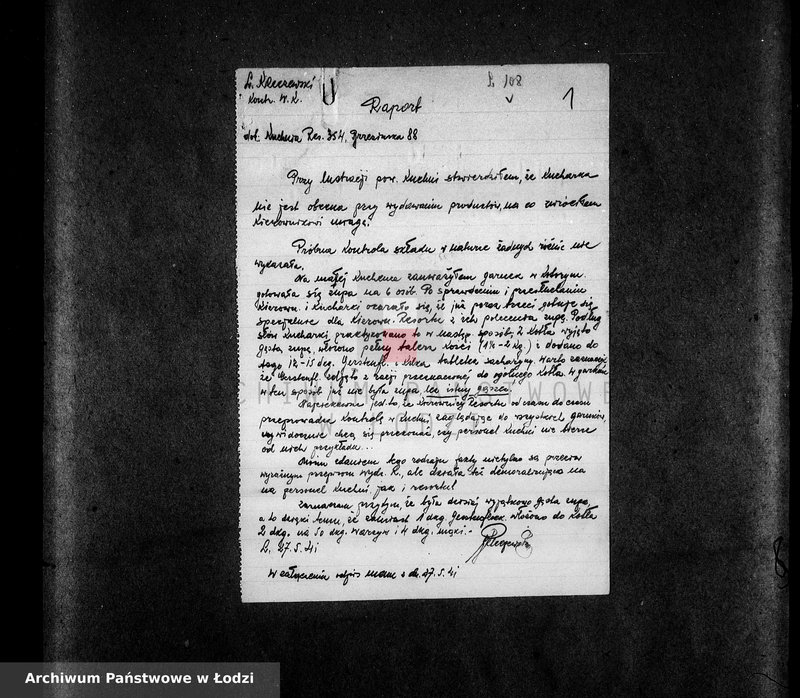 L. Kruszewski
Kontr. W. K.
L 108
1
Raport
dot. Kuchnia Res. 354, Brzezinska 88
Przy lustracji pow. Kuchni stwierdziłem, że Kucharka
nie jest obecna przy wydawaniu productów, na co zwróciłem
Kierownikowi uwagę.
Próbna Kontrola składu w naturze żadnych różnic nie
wykazała.
Na małej Kuchence zauważyłem garnek w którym
gotowała się zupa na 6 osób. Po sprawdzeniu i przesłuchaniu
Kierown. i Kucharki okazało się, że już poraz trzeci gotuje się
specjalnie dla Kierown. Resortu z ich polecenia zupę. Podług
słów Kucharki praktykowano to w następ. sposób, z Kotła wyjęto
gęstą zupę, włożono pełny talerz Kości (1½-2 kg.) i dodano do
tego 12-15 dkg. Gerstenfl. i kilka tabletek sacharyny. Warto zaznaczyć
że Gerstenfl. wzięto z racji przeznaczonej do ogólnego Kotła. W garnku
w ten sposób już nie była zupa lecz istny
jest to, że Kierownicy Resortu czasem do czasu
przeprowadza Kontrolę w Kuchni, zaglądając do wszystkich garnków,
widocznie chcą się przekonać, czy personel Kuchni nie bierze
od nich przykładu...
Moim zdaniem tego rodzaju fakty nietylko są przeciw
wyraźnym przepisom wydz. K., ale działa też demoralizująco na
na personel Kuchni, jak i resortu!
Zaznaczam przytym, że była dzisiaj wyjątkowo gęsta zupa,
a to dzięki temu, że zamiast 1 dkg. włożono do Kotła
2 dkg. na 50 dkg. warzyw i 4 dkg. mąki.-
L. 27.5.41
W załączeniu odpis z dn. 27.5.41
ARCHIWUM PAŃSTWOWE
W ŁODZI
Archiwum Państwowe w Łodzi